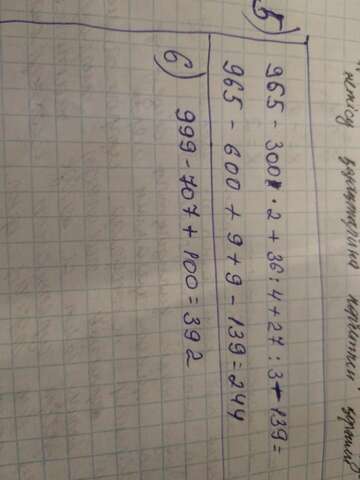 5)
965 - 300 · 2 + 36 : 4 + 27 : 3 - 139 =
965 - 600 + 9 + 9 - 139 = 244
6) 999 - 707 + 100 = 392